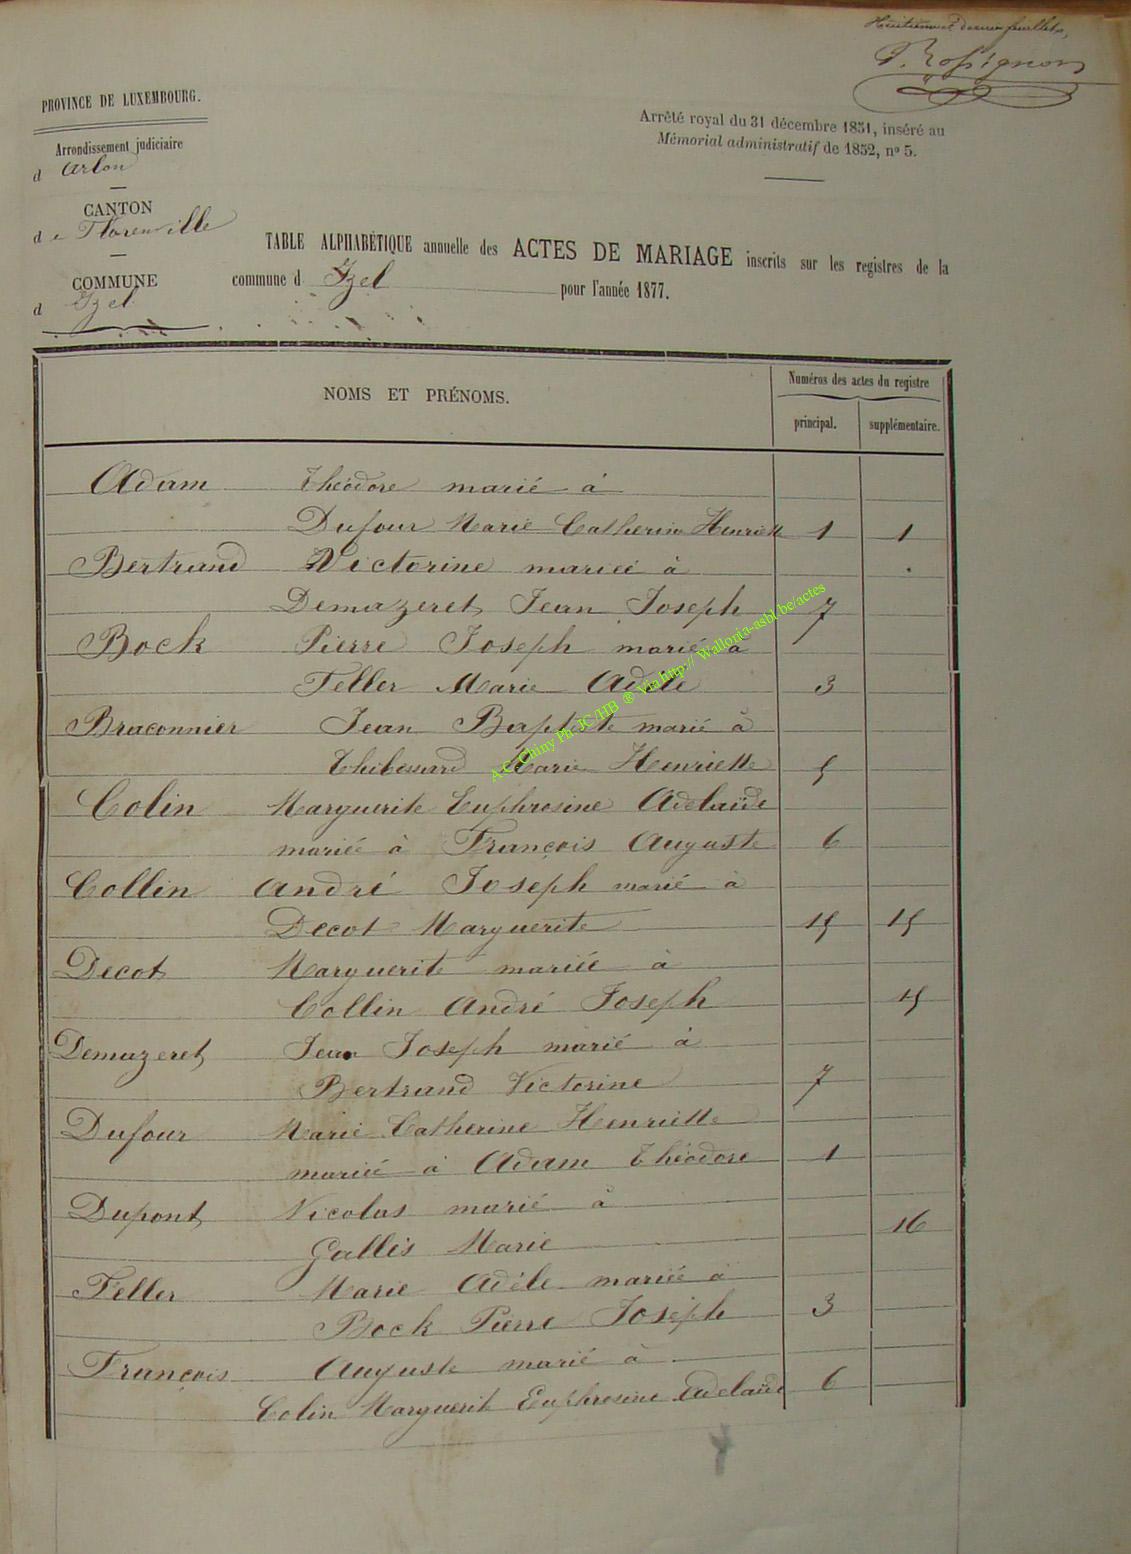 Huitième et dernier feuillet,
T. Rossignon
PROVINCE DE LUXEMBOURG.
Arrondissement judiciaire
d Arlon
CANTON
de Florenville
COMMUNE
d Izel
Arrêté royal du 31 décembre 1851, inséré au
Mémorial administratif de 1852, nº 5.
TABLE ALPHABÉTIQUE annuelle des ACTES DE MARIAGE inscrits sur les registres de la
commune d Izel pour l'année 1877.
NOMS ET PRÉNOMS.
Numéros des actes du registre
principal. supplémentaire.
Adam Théodore marié à
Dufour Marie Catherine Henriette 1 1
Bertrand Victorine mariée à
Demazeret Jean Joseph 7
Bock Pierre Joseph marié à
Feller Marie Adèle 3
Braconnier Jean Baptiste marié à
Marie Henriette 5
Colin Marguerite Euphrosine Adelaïde
mariée à François Auguste 6
Collin André Joseph marié à
Decot Marguerite 15 15
Decot Marguerite mariée à
Collin André Joseph 15
Demazeret Jean Joseph marié à
Bertrand Victorine 7
Dufour Marie Catherine Henriette
mariée à Adam Théodore 1
Dupont Nicolas marié à
Gallis Marie 16
Feller Marie Adèle mariée à
Bock Pierre Joseph 3
François Auguste marié à
Colin Marguerite Euphrosine Adelaïde 6
A.C. Chiny Ph. JC /HB ® Via http:// Wallonia-asbl.be/actes